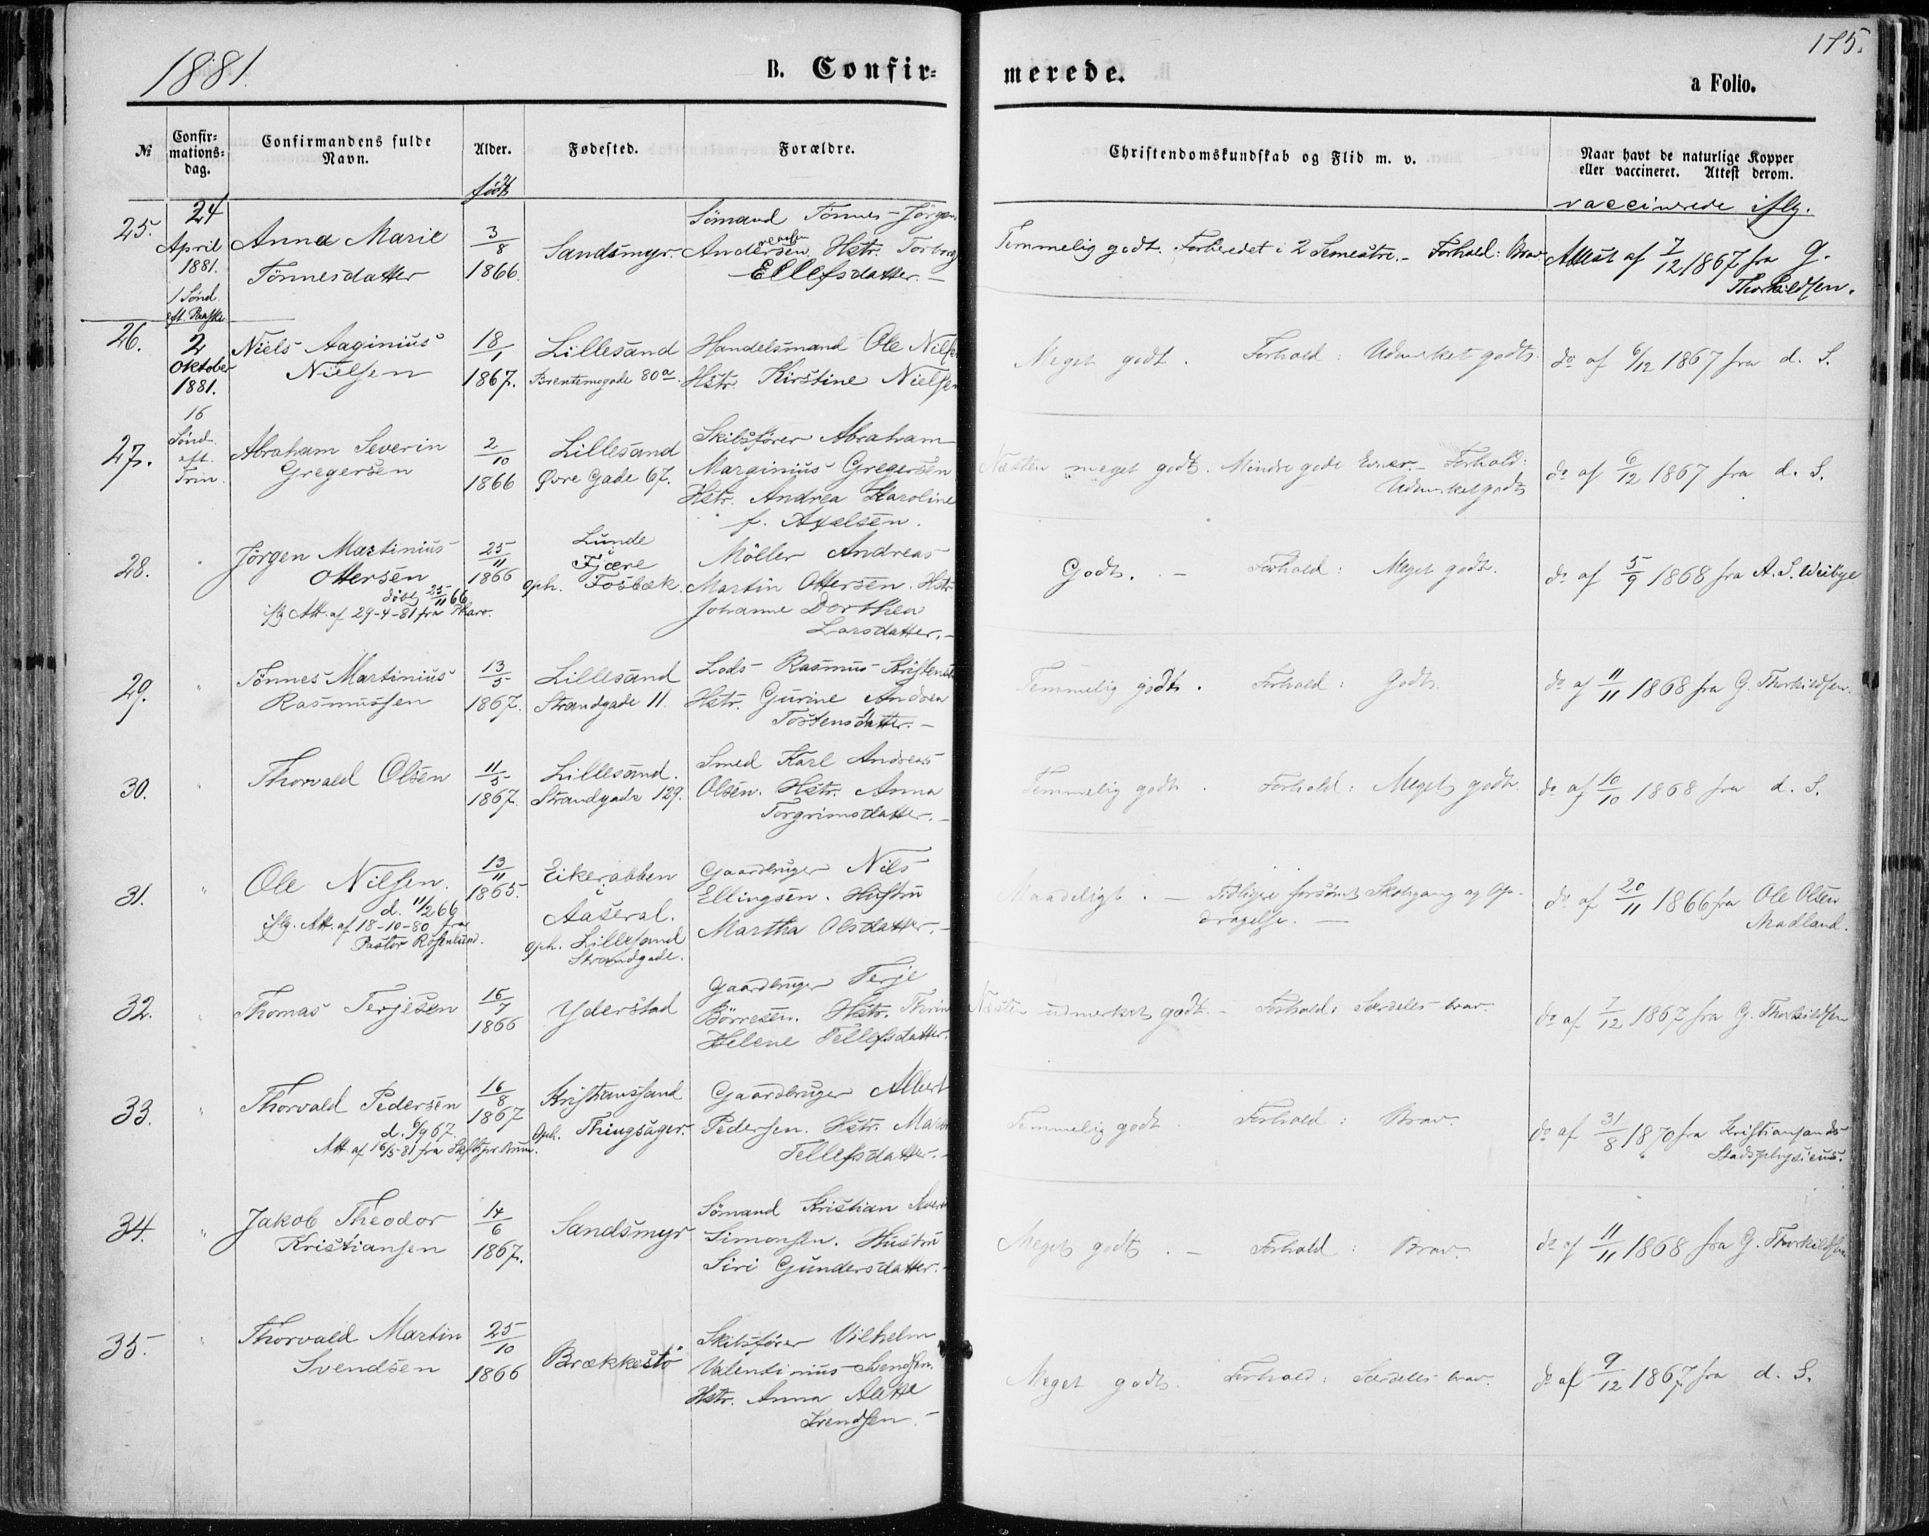 1881.
B. Confir-
merede.
175.
a Folio.
№
Confir-
mations-
dag.
Confirmandens fulde
Navn.
Alder.
født
Fødested.
Forældre.
Christendomskundskab og Flid m. v.
Naar havt de naturlige Kopper
eller vaccineret. Attest derom.
vaccinerede iflg.
25.
24
April
1881.
1 Sønd.
eft. Paaske
Anna Marie
Tönnesdatter
3/8
1866.
Sandsmyr.
Sömand Tönnes Jörgen
Andersen Hstr. Torborg
Ellefsdatter.
Temmelig godt. Forberedet i 2 Semestre. - Forhold: Brav
Attest af 7/12 1867 fra G.
Thorkildsen.
26.
2
Oktober
1881.
16
Sönd.
eft.
Trin.
Niels Aaginius
Nielsen
18/1
1867.
Lillesand
Brentemsgade 80a.
Handelsmand Ole Nilsen
Hstr. Kirstine Nielsen
Meget godt. Forhold: Udmerket godt.
do af 6/12 1867 fra d. S.
27.
Abraham Severin
Gregersen
2/10
1866
Lillesand
Øvre Gade 67.
Skibsförer Abraham
Marginius Gregersen
Hstr. Andrea Karoline
f. Axelsen.
Næsten meget godt. Mindre gode Evner. - Forhold:
Udmerket godt
do af 6/12 1867 fra d. S.
28.
"
Jörgen Martinius
Ottersen
döbt 25/11 66
iflg Att. af 29-4-81 fra Pharv.
25/11
1866
Lunde
i
Fjære
oph. Fosbæk.
Möller Andreas
Martin Ottersen. Hstr
Johanne Dorthea
Larsdatter. -
Godt. - Forhold: Meget godt.
do af 5/9 1868 fra A. S. Weibye
29.
"
Tönnes Martinius
Rasmussen
13/5
1867.
Lillesand
Strandgade 11.
Lods Rasmus Kristensen
Hstr. Gurine Andrea
Tostensdatter. -
Temmelig godt. Forhold: Godt.
do af 11/11 1868 fra G. Thorkildsen.
30.
"
Thorvald Olsen
11/5
1867.
Lillesand.
Strandgade 129.
Smed Karl Andreas
Olsen. Hstr. Anna
Torgrimsdatter. -
Temmelig godt. Forhold: Meget godt.
do af 10/10 1868 fra d. S.
31.
"
Ole Nilsen.
d. 11/2 66
iflg. Att. af 18-10-80 fra
Pastor Rosenlund.
13/11
1865.
Eikerabben
i
Aaseral.
oph. Lillesand
Strandgade.
Gaardbruger Nils
Ellingsen. Hustru
Martha Olsdatter. -
Maadeligt. - Tidligere forsømt Skolegang og Op-
dragelse. -
do af 20/11 1866 fra Ole Olsen
Aadland.
32.
"
Thomas Terjesen
16/7
1866
Yderstad
Gaardbruger Terje
Börresen. Hstr. Thrine
Helene Tellefsdatter.
Næsten udmerket godt. - Forhold: Særdeles brav.
do af 7/12 1867 fra G. Thorkildsen
33.
"
Thorvald Pedersen
d. 6/9 67.
Att af 16/5-81 fra
16/8
1867
Kristianssand
Oph. Thingsager.
Gaardbruger Albert
Pedersen. Hstr. Maren
Tellefsdatter. -
Temmelig godt Forhold: Brav.
do af 31/8 1870 fra Kristiansands
Stadsphysicus.
34.
"
Jakob Theodor
Kristiansen
14/6
1867.
Sandsmyr
Sömand Kristian
Simonsen. Hustru
Siri Gundersdatter. -
Meget godt. - Forhold: Brav.
do af 11/11 1868 fra G. Thorkildsen
35.
"
Thorvald Martin
Svendsen
25/10
1866
Brækkestö
Skibsförer Vilhelm
Valentinius Svendsen.
Hstr. Anna Alette
Svendsen. -
Meget godt. Forhold: Særdeles brav.
do af 9/12 1867 fra d. S.